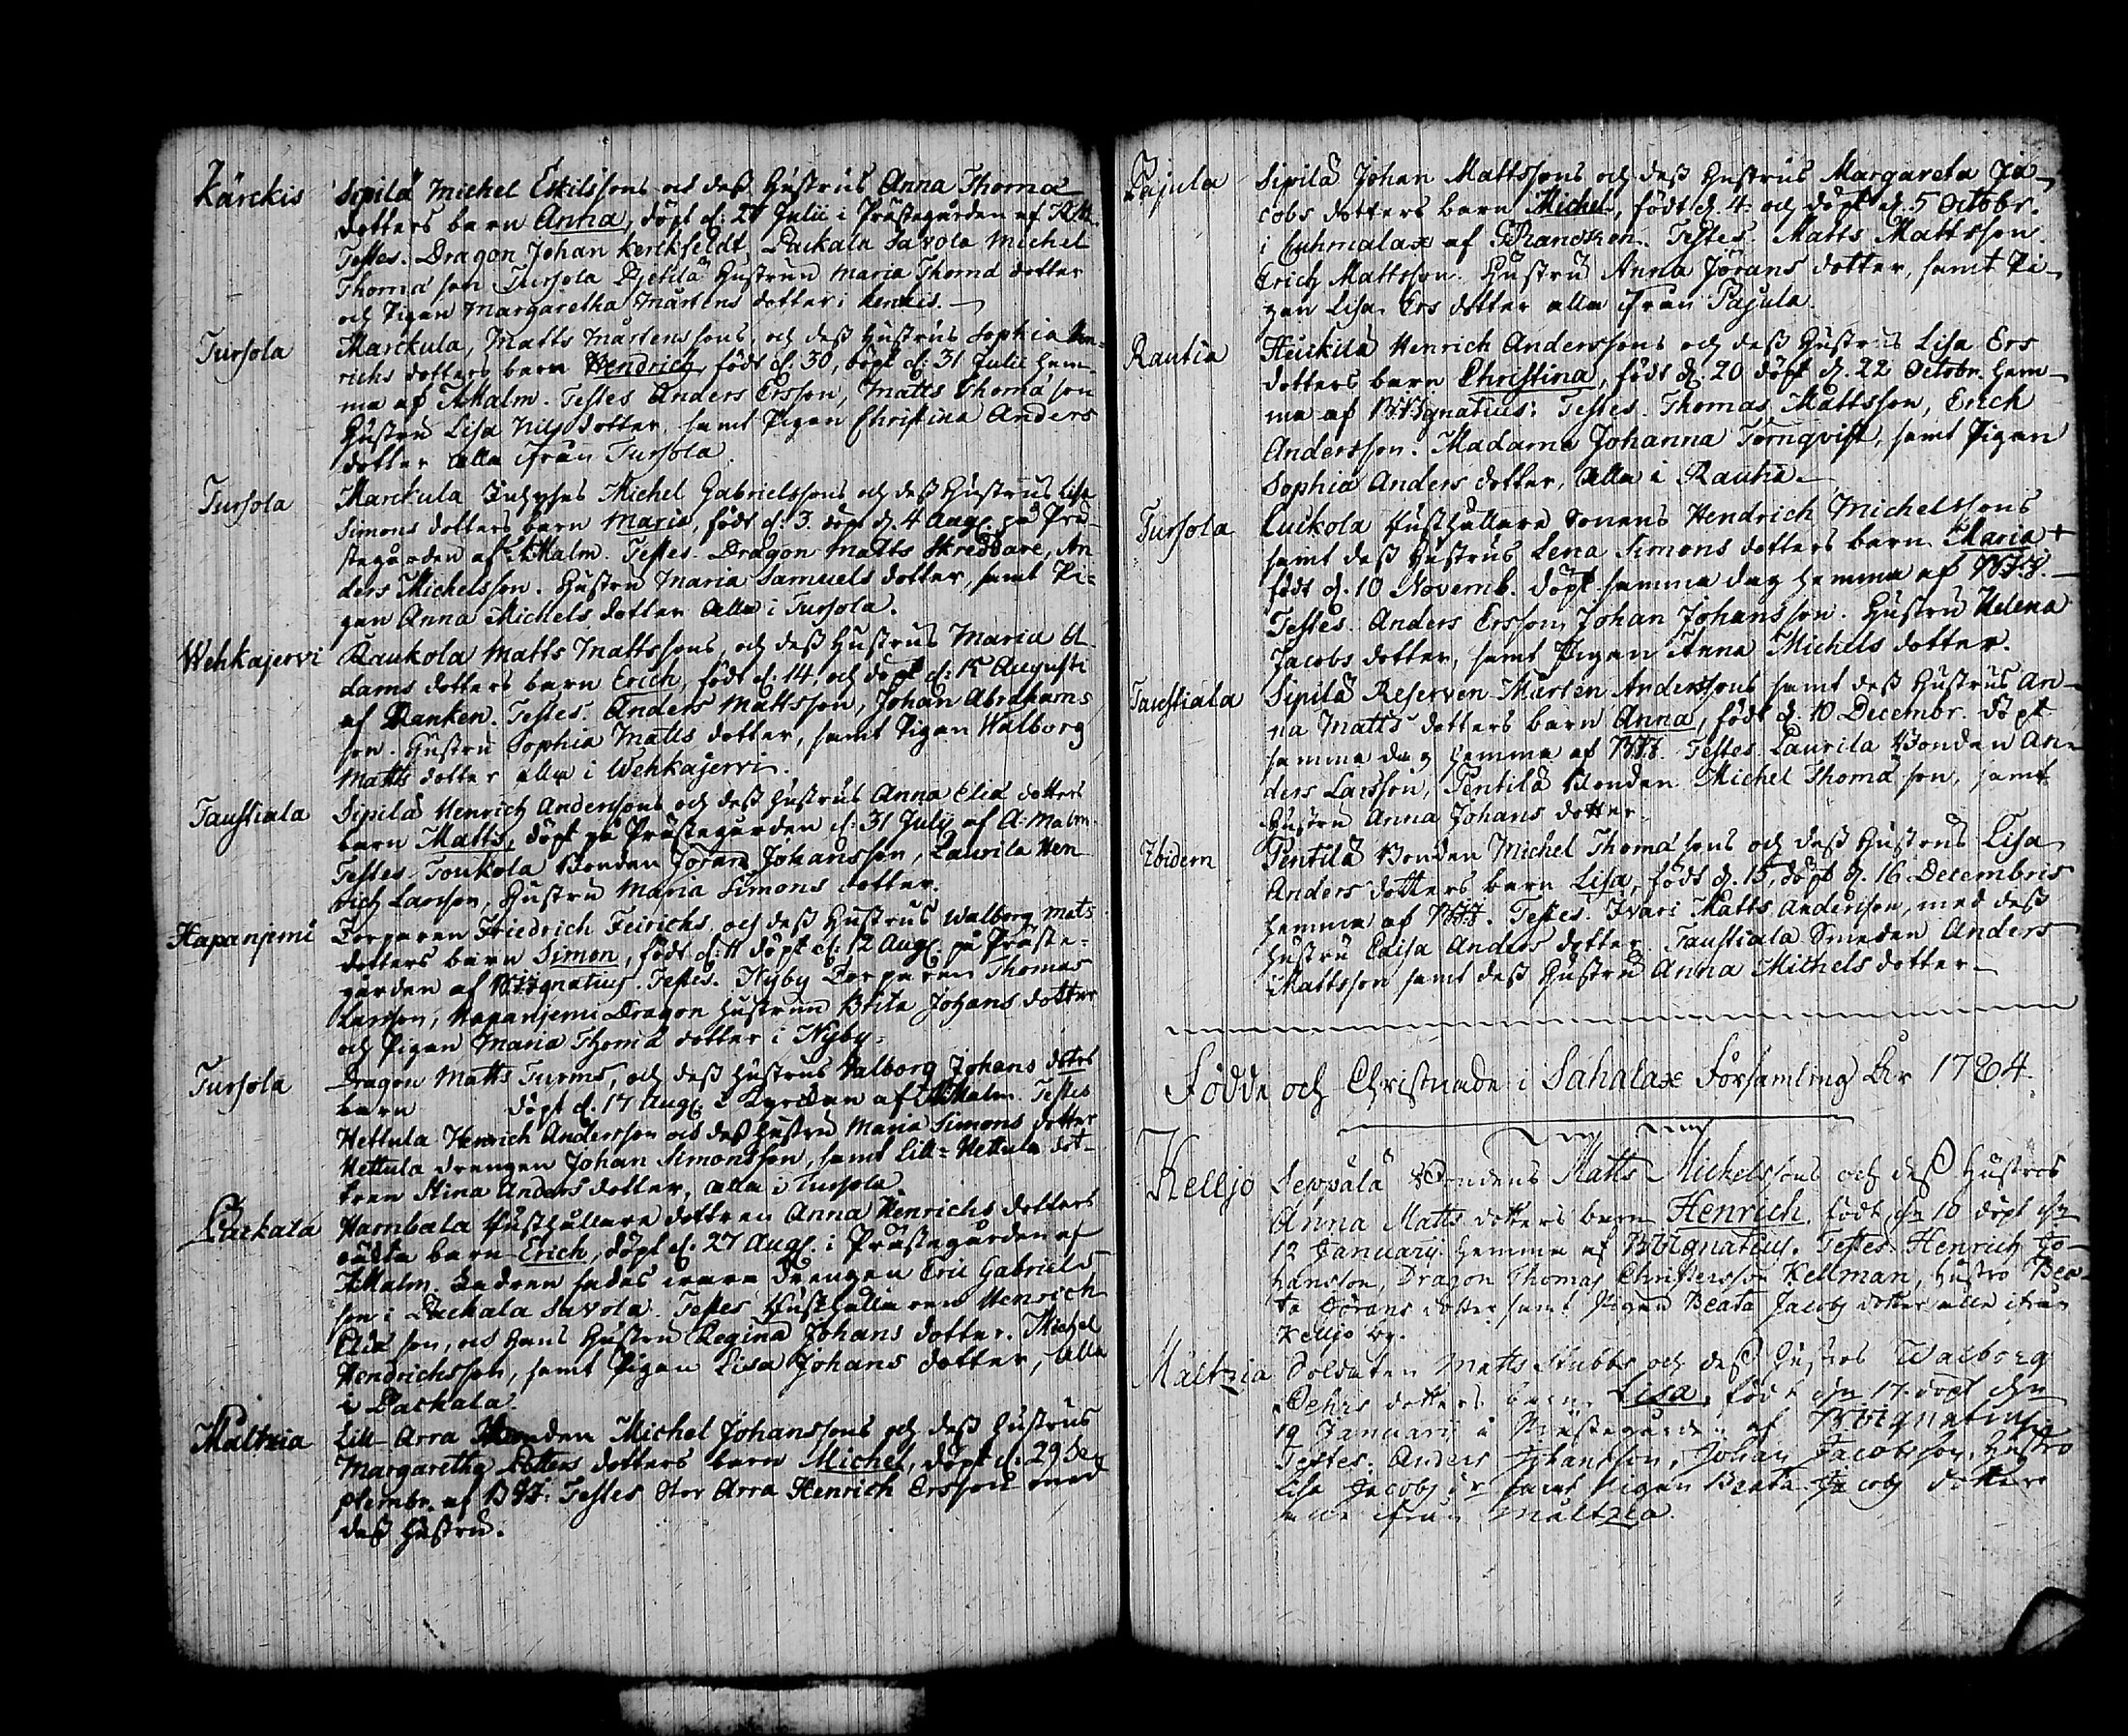 Kärckis Sipilä Michel Eskilssons och dess Hustrus Anna Thomæ
dotters barn Anna, döpt d. 27 Julii i Prästegården af
Testes. Dragon Johan Kerckfeldt, Packala Savola Michel
Thomæ son Tursola Pjetilä Hustrun Maria Thomæ dotter
och Pigan Margaretha Mårtens dotter i Kerckis.
Tursola Marckula, Matts Mårtenssons, och dess Hustrus Sophia Hen-
richs dotters barn Hendrich, född d. 30, döpt d. 31 Julii hem-
ma af Malm. Testes Anders Ersson, Matts Thomæ son
Hustru Lisa Nils dotter, samt Pigan Christina Anders
dotter alla ifrån Tursola.
Tursola Marckula Inhyses Michel Gabrielssons och dess Hustrus Lisa
Simons dotters barn Maria, född d. 3. döpt d. 4 Aug. på Prä-
stegården af Malm. Testes. Dragon Matts Skreddare, An
ders Michelsson. Hustru Maria Samuels dotter, samt Pi-
gan Anna Michels dotter alla i Tursola.
Wehkajervi Raukola Matts Mattssons, och dess Hustrus Maria A-
dams dotters barn Erich, född d. 14, och döpt d. 15 Augusti
af Ranken. Testes. Anders Mattsson, Johan Abrahams
son. Hustru Sophia Matts dotter, samt Pigan Walborg
Matts dotter alla i Wehkajervi.
Taustiala Sipilä Henrich Anderssons och dess Hustrus Anna Eliæ dotters
barn Matts, döpt på Prästegården d. 31 July af A. Malm.
Testes Toukola Bonden Jöran Johansson, Laurila Hen
rich Larsson, Hustru Maria Simons dotter.
Hapanjemi Torparen Friedrich Feirichs, och dess Hustrus Walborg Mats
dotters barn Simon, född d. 11 döpt d. 12 Aug. på Präste-
gården af Ignatius. Testes. Nyby Torparen Thomas
Larsson, Hapanjemi Dragon Hustrun Brita Johans dotter
och Pigan Maria Thomæ dotter i Nyby.
Tursola Dragon Matts Turms, och dess Hustrus Valborg Johans dotrs
barn döpt d. 17 Aug. i Kyrckan af Malm. Testes
Hettula Henrich Andersson och dess Hustru Maria Simons dotter
Hettula drengen Johan Simonsson, samt Lill-Hettula dot-
tren Stina Anders dotter, alla i Tursola
Packala Hambala Husthållare dottren Anna Henrichs dotters
oäkta barn Erich, döpt d. 27 Aug. i Prästegården af
Malm. Fadren sades wara Drengen Eric Gabriels
son i Packala Savola. Testes Husthållaren Henrich
Eliæ son, och Hans Hustru Regina Johans dotter. Michel
Hendrichsson, samt Pigan Lisa Johans dotter, alla
i Packala.
Maltzia Lill Arra Bonden Michel Johanssons och dess Hustrus
Margaretha dotters barn Michel, döpt d. 29 Se
ptembr. af Testes Stor Arra Henrich Ersson med
dess Hustru.
Pajula Sipilä Johan Mattssons och dess Hustrus Margareta Ja-
cobs dotters barn Michel, född d. 4. och döpt d. 5 Octobr.
i Cuhmalax af Testes. Matts Mattsson.
Erich Mattsson. Hustru Anna Jörans dotter, samt Pi-
gan Lisa Ers dotter alla ifrån Pajula.
Rautia Heickilä Henrich Anderssons och dess Hustrus Lisa Ers
dotters barn Christina, född d. 20 döpt d. 22 Octobr. hem-
ma af Ignatius. Testes. Thomas Mattsson, Erich
Andersson. Madama Johanna Törnqvist, samt Pigan
Sophia Anders dotter, alla i Rautia.
Tursola Luckola Husthållare Sonens Hendrich Michelssons
samt dess Hustrus Lena Simons dotters barn Maria +
född d. 10 Novemb. döpt samma dag hemma af
Testes. Anders Ersson, Johan Johansson. Hustru Helena
Jacobs dotter, samt Pigan Anna Michels dotter.
Taustiala Sipilä Reserven Mårten Anderssons samt dess Hustrus An-
na Matts dotters barn Anna, född d. 10 Decembr. döpt
samma dag hemma af Testes Laurila Bonden An-
ders Larsson, Pentilä Bonden Michel Thomæ son, samt
Hustru Anna Johans dotter.
Ibidem Pentilä Bonden Michel Thomæ sons och dess Hustrus Lisa
Anders dotters barn Lisa, född d. 15, döpt d. 16 Decembris
hemma af Testes. Ivari Matts Andersson, med dess
Hustru Caisa Anders dotter. Taustiala Smeden Anders
Mattsson samt dess Hustru Anna Michels dotter.
Födde och Christnade i Sahalax Församling År 1784.
Kelljo Seppälä Bondens Matts Michelssons och dess Hustros
Anna Matts dotters barn Henrich född d 10 döpt d
12 January hemma af Ignatius. Testes. Henrich Jo-
hansson, Dragon Thomas Christersson Kellman, Hustro Bea-
ta Jörans dotter samt Pigan Beata Jacobs dotter alla ifrån
Kelljo by.
Maltzia Soldaten Matts Stubbs och dess Hustros Walborg
dotters barn Lisa, född d 17. döpt d
19 January i Prästegården af Ignatius.
Testes. Anders Johansson, Johan Jacobsson, Hustro
Lisa Jacobs dr samt Pigan Beata Jacobs dotter
alla ifrån Maltzia.